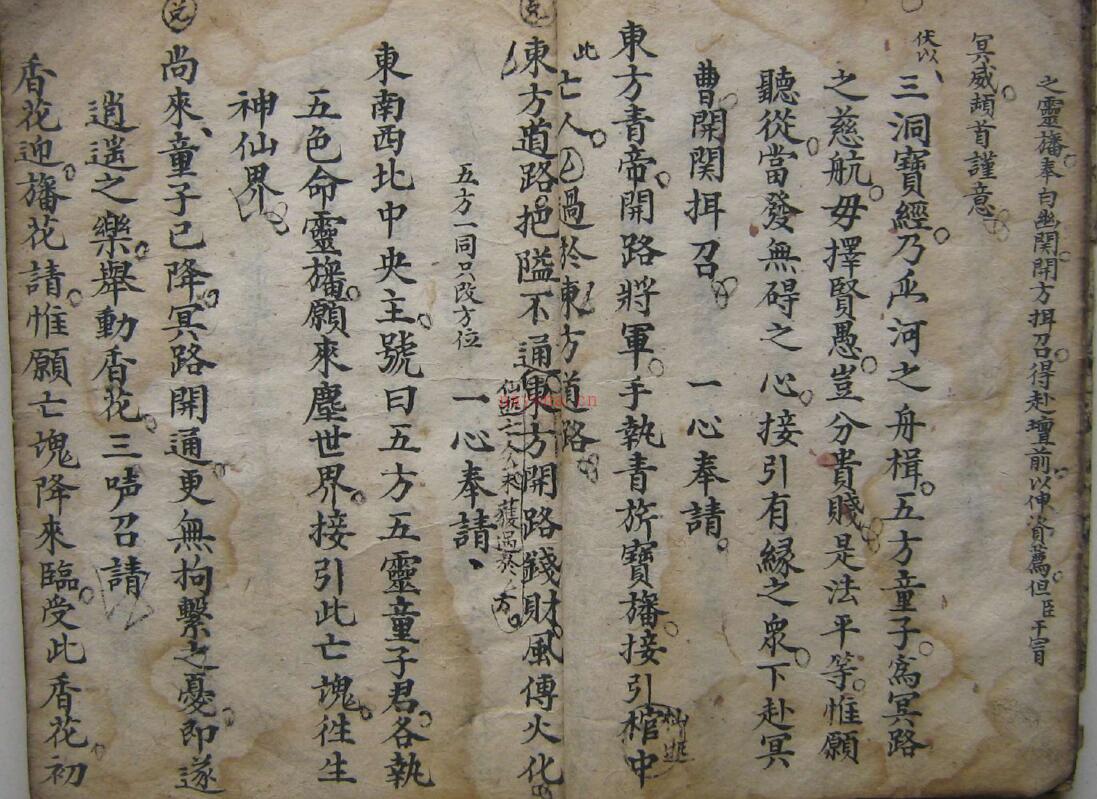 之靈旛奉白幽関開方揖召得赴壇前以伸資薦但臣干冒
冥威頫首謹意
伏以
三洞寶經乃㐀河之舟楫五方童子為冥路
之慈航毋擇賢愚豈分貴賤是法平等惟願
聽從當發無碍之心接引有緣之衆下赴冥
曹開関揖召 一心奉請
東方青帝開路將軍手執青旂寶旛接引棺中
仙逝
此亡人ム過於東方道路
東方道路把隘不通東方開路錢財風傳火化
五方一同只改方位 一心奉請
東南西北中央主號曰五方五靈童子君各執
五色命靈旛願來塵世界接引此亡魂徃生
神仙界
尚來童子已降冥路開通更無拘繫之憂即遂
逍遥之樂舉動香花三唱召請
香花迎旛花請惟願亡魂降來臨受此香花初